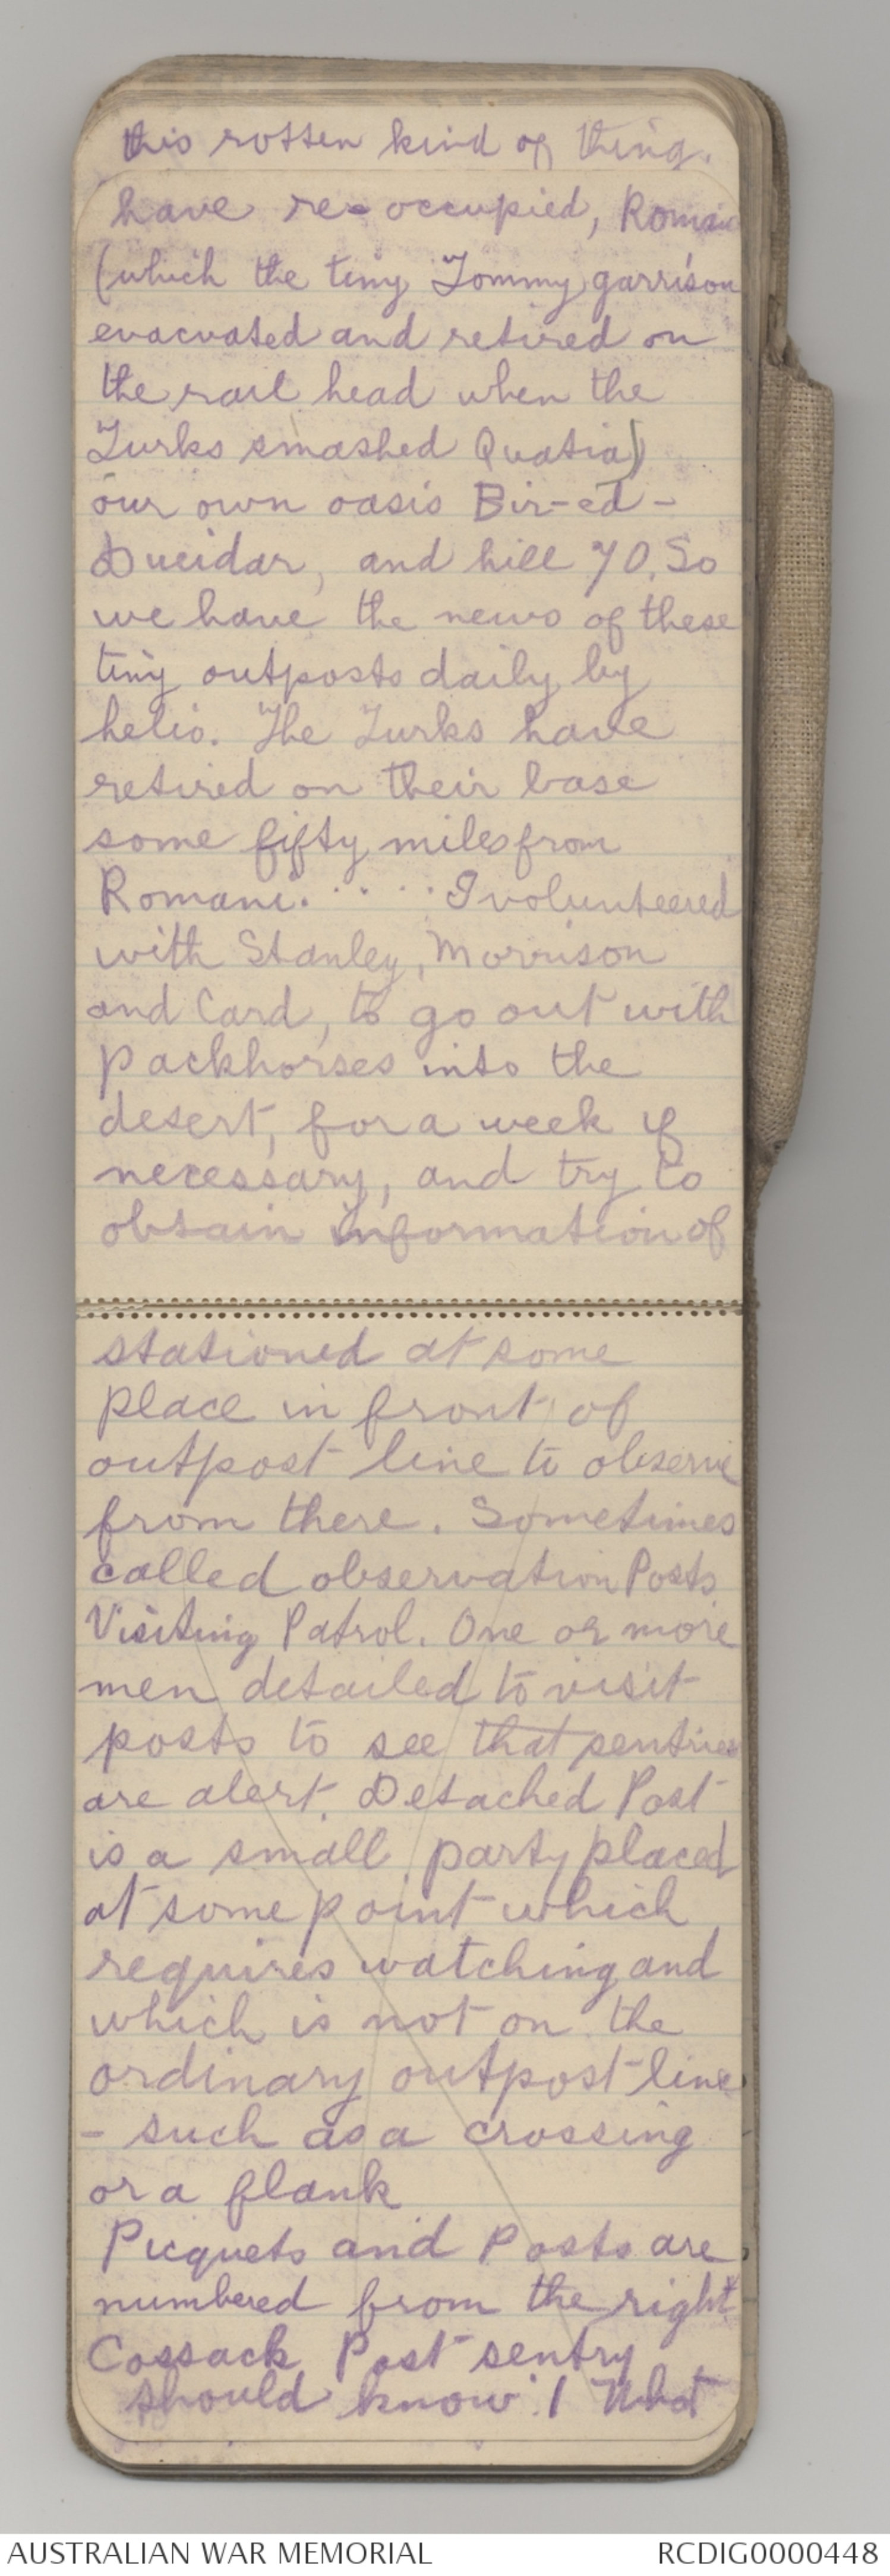 this rotten kind of thing.
have re-occupied, Romani
(which the tiny Tommy garrison
evacuated and retired on
the rail head when the
Turks smashed Quatia)
our own oasis Bir-ed-
Dueidar, and hill 70. So
we have the news of these
tiny outposts daily by
helio. The Turks have
retired on their base
some fifty miles from
Romani. . . . . I volunteered
with Stanley, Morrison
and Card, to go out with
packhorses into the
desert, for a week if
necessary, and try to
obtain information of
stationed at some
place in front of
outpost line to observe
from there. Sometimes
called observation Posts
Visiting Patrol. One or more
men detailed to visit
posts to see that sentries
are alert. Detached Post
is a small party placed
at some point which
requires watching and
which is not on the
ordinary outpost-line
- such as a crossing
or a flank
Picquets and Posts are
numbered from the right
Cossack Post sentry
should know :1 What
AUSTRALIAN WAR MEMORIAL RCDIG0000448